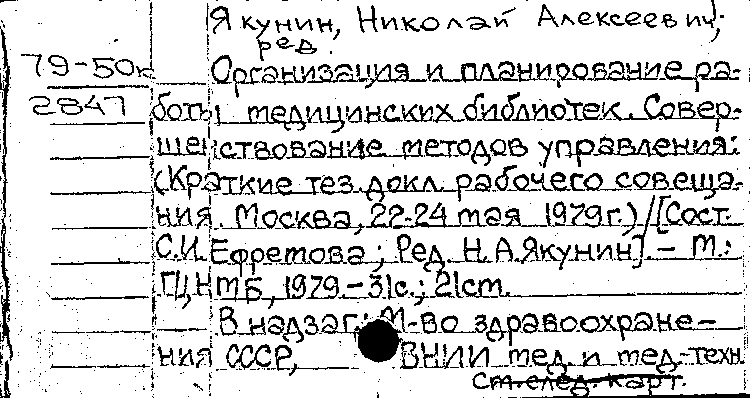 Якунин, Николай Алексеевич,
ред.
79-50к Организация и планирование ра-
2847 боты медицинских библиотек. Совер-
шенствование методов управления:
(Краткие тез. докл. рабочего совеща-
ния. Москва, 22-24 мая 1979г.)/[Сост.
С.И. Ефретова; Ред. Н.А.Якунин]. - М.:
ГЦНМБ, 1979.-31с.; 21см.
В надзаг.: М-во здравоохране-
ния СССР, ВНИИ мед. и мед.-техн
См. след. карт.